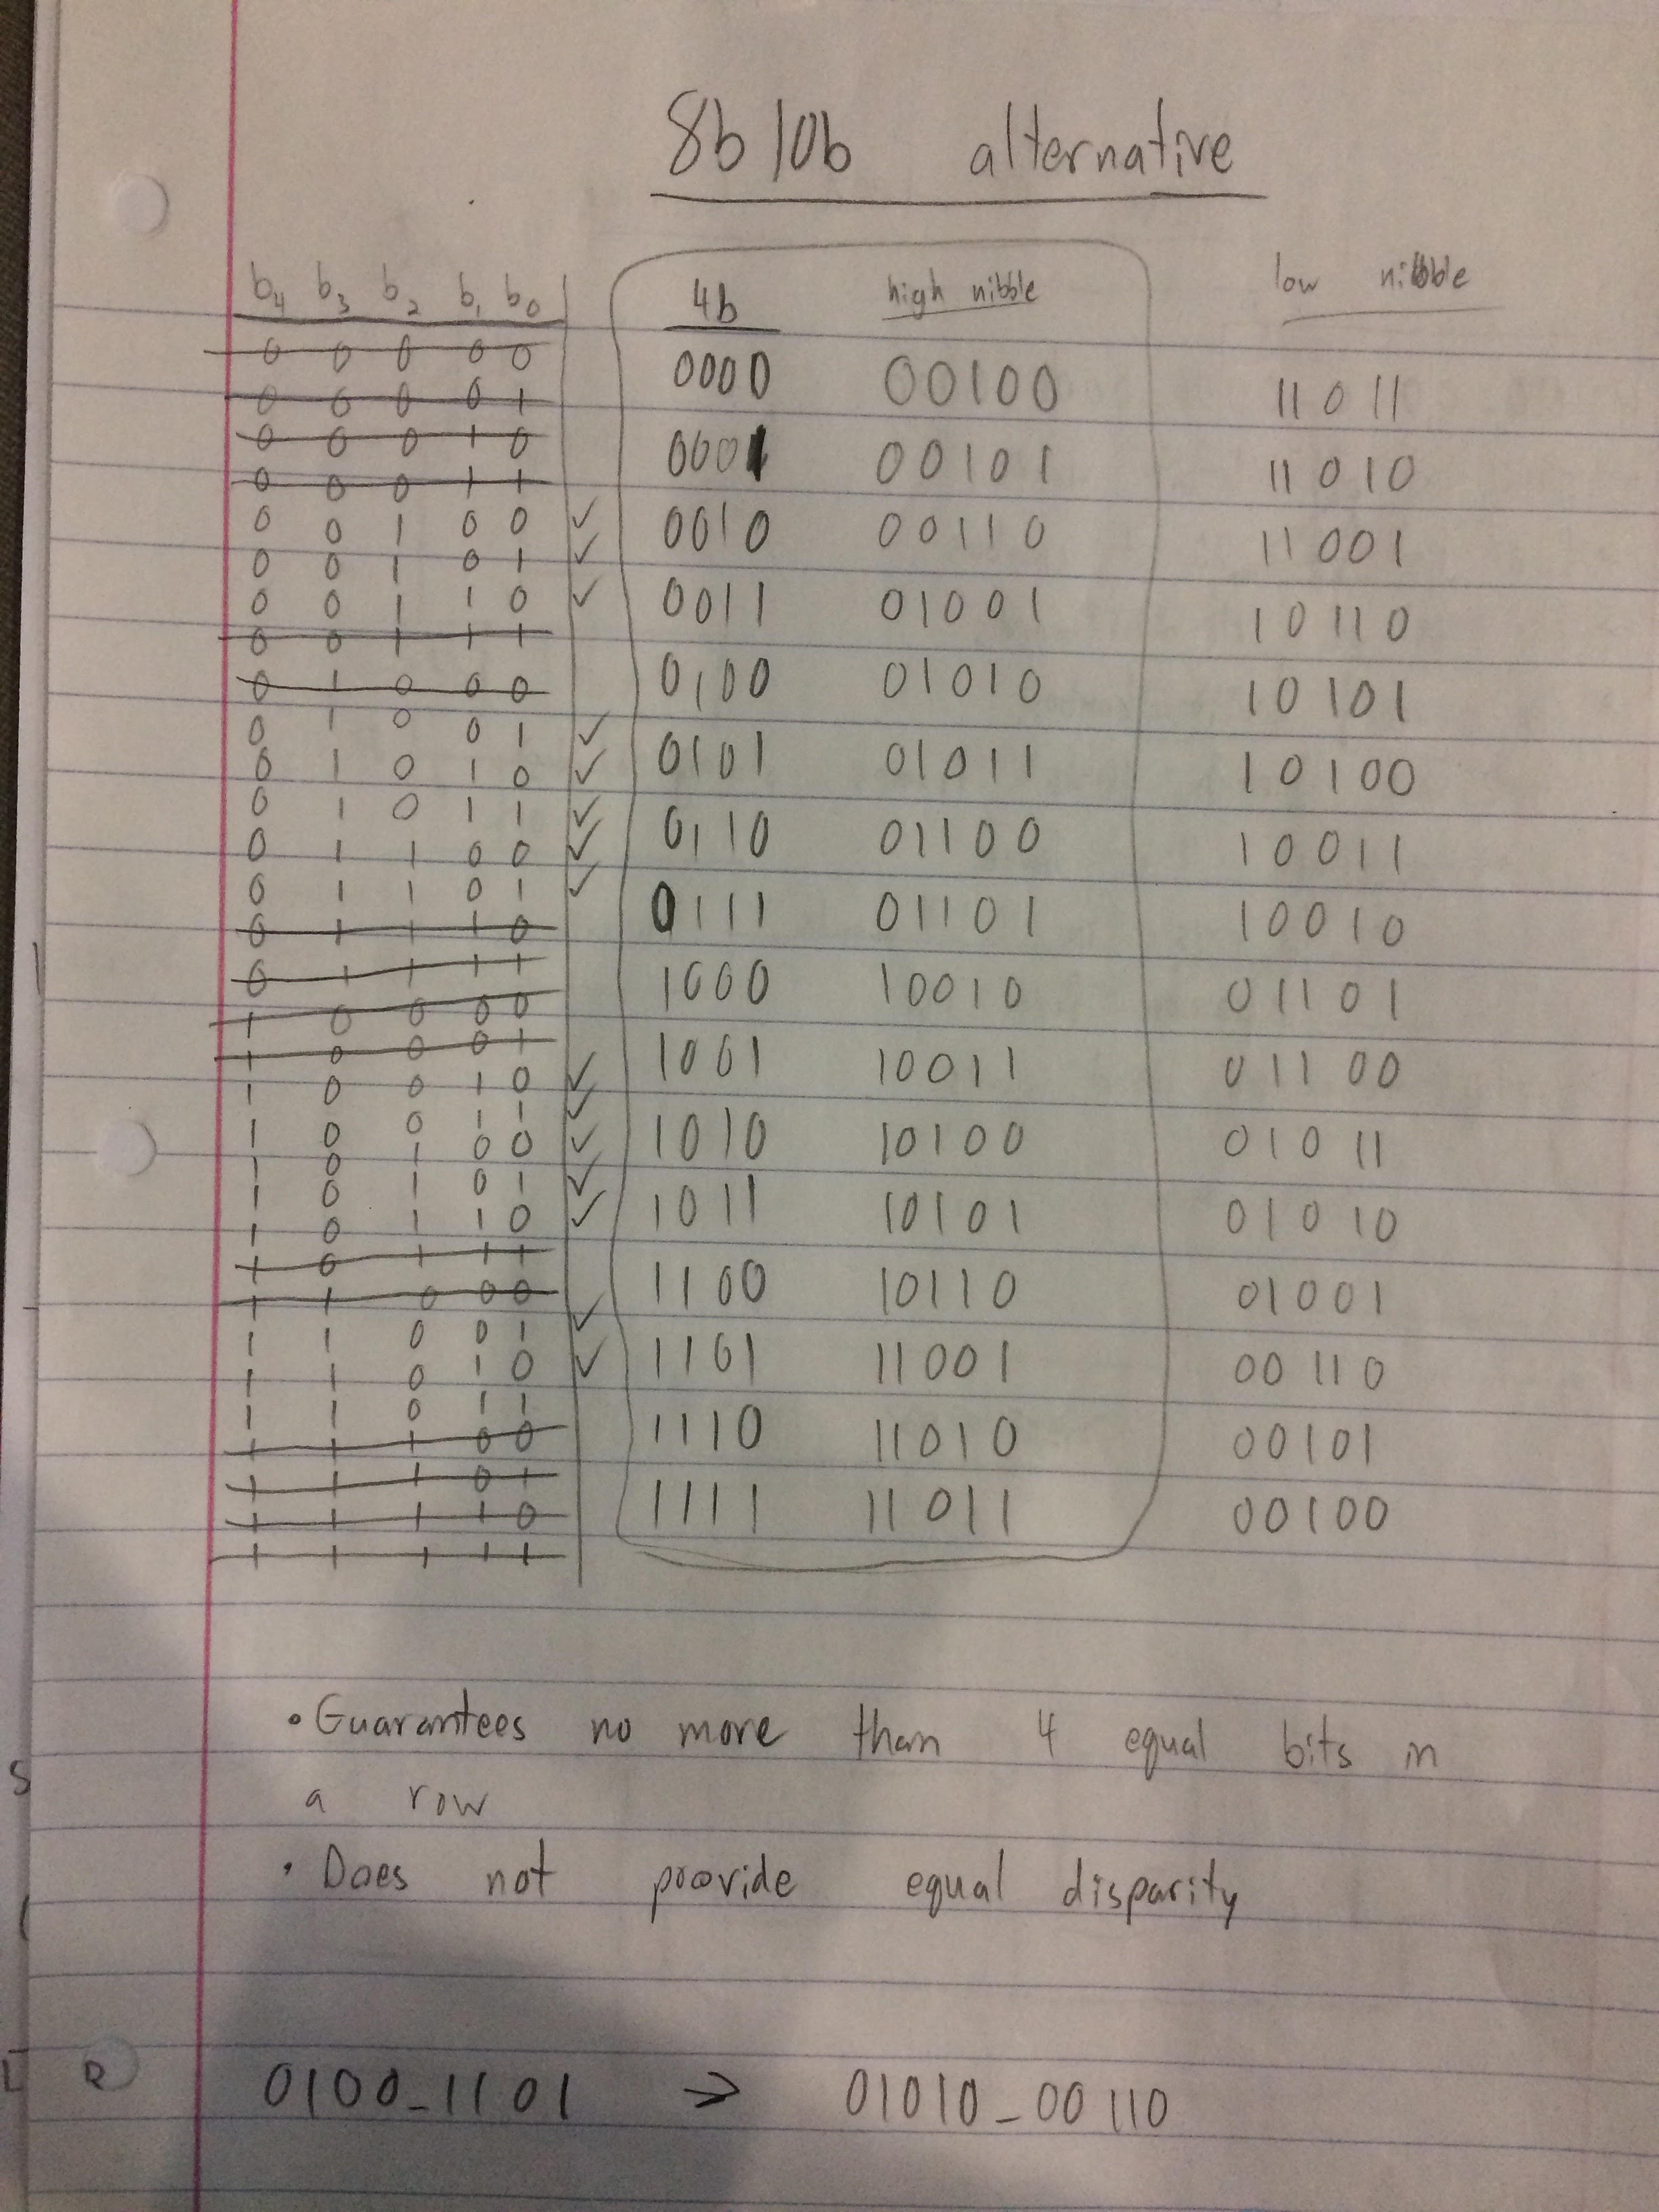 8b10b alternative
b4 b3 b2 b1 b0
0 0 0 0 0
0 0 0 0 1
0 0 0 1 0
0 0 0 1 1
0 0 1 0 0 ✓
0 0 1 0 1 ✓
0 0 1 1 0 ✓
0 0 1 1 1
0 1 0 0 0
0 1 0 0 1 ✓
0 1 0 1 0 ✓
0 1 0 1 1 ✓
0 1 1 0 0 ✓
0 1 1 0 1 ✓
0 1 1 1 0
0 1 1 1 1
1 0 0 0 0
1 0 0 0 1
1 0 0 1 0 ✓
1 0 0 1 1 ✓
1 0 1 0 0 ✓
1 0 1 0 1 ✓
1 0 1 1 0 ✓
1 0 1 1 1
1 1 0 0 0
1 1 0 0 1 ✓
1 1 0 1 0 ✓
1 1 0 1 1
1 1 1 0 0
1 1 1 0 1
1 1 1 1 0
1 1 1 1 1
4b high nibble low nibble
0000 00100 11011
0001 00101 11010
0010 00110 11001
0011 01001 10110
0100 01010 10101
0101 01011 10100
0110 01100 10011
0111 01101 10010
1000 10010 01101
1001 10011 01100
1010 10100 01011
1011 10101 01010
1100 10110 01001
1101 11001 00110
1110 11010 00101
1111 11011 00100
• Guarantees no more than 4 equal bits in
a row
• Does not provide equal disparity
0100_1101 → 01010_00110